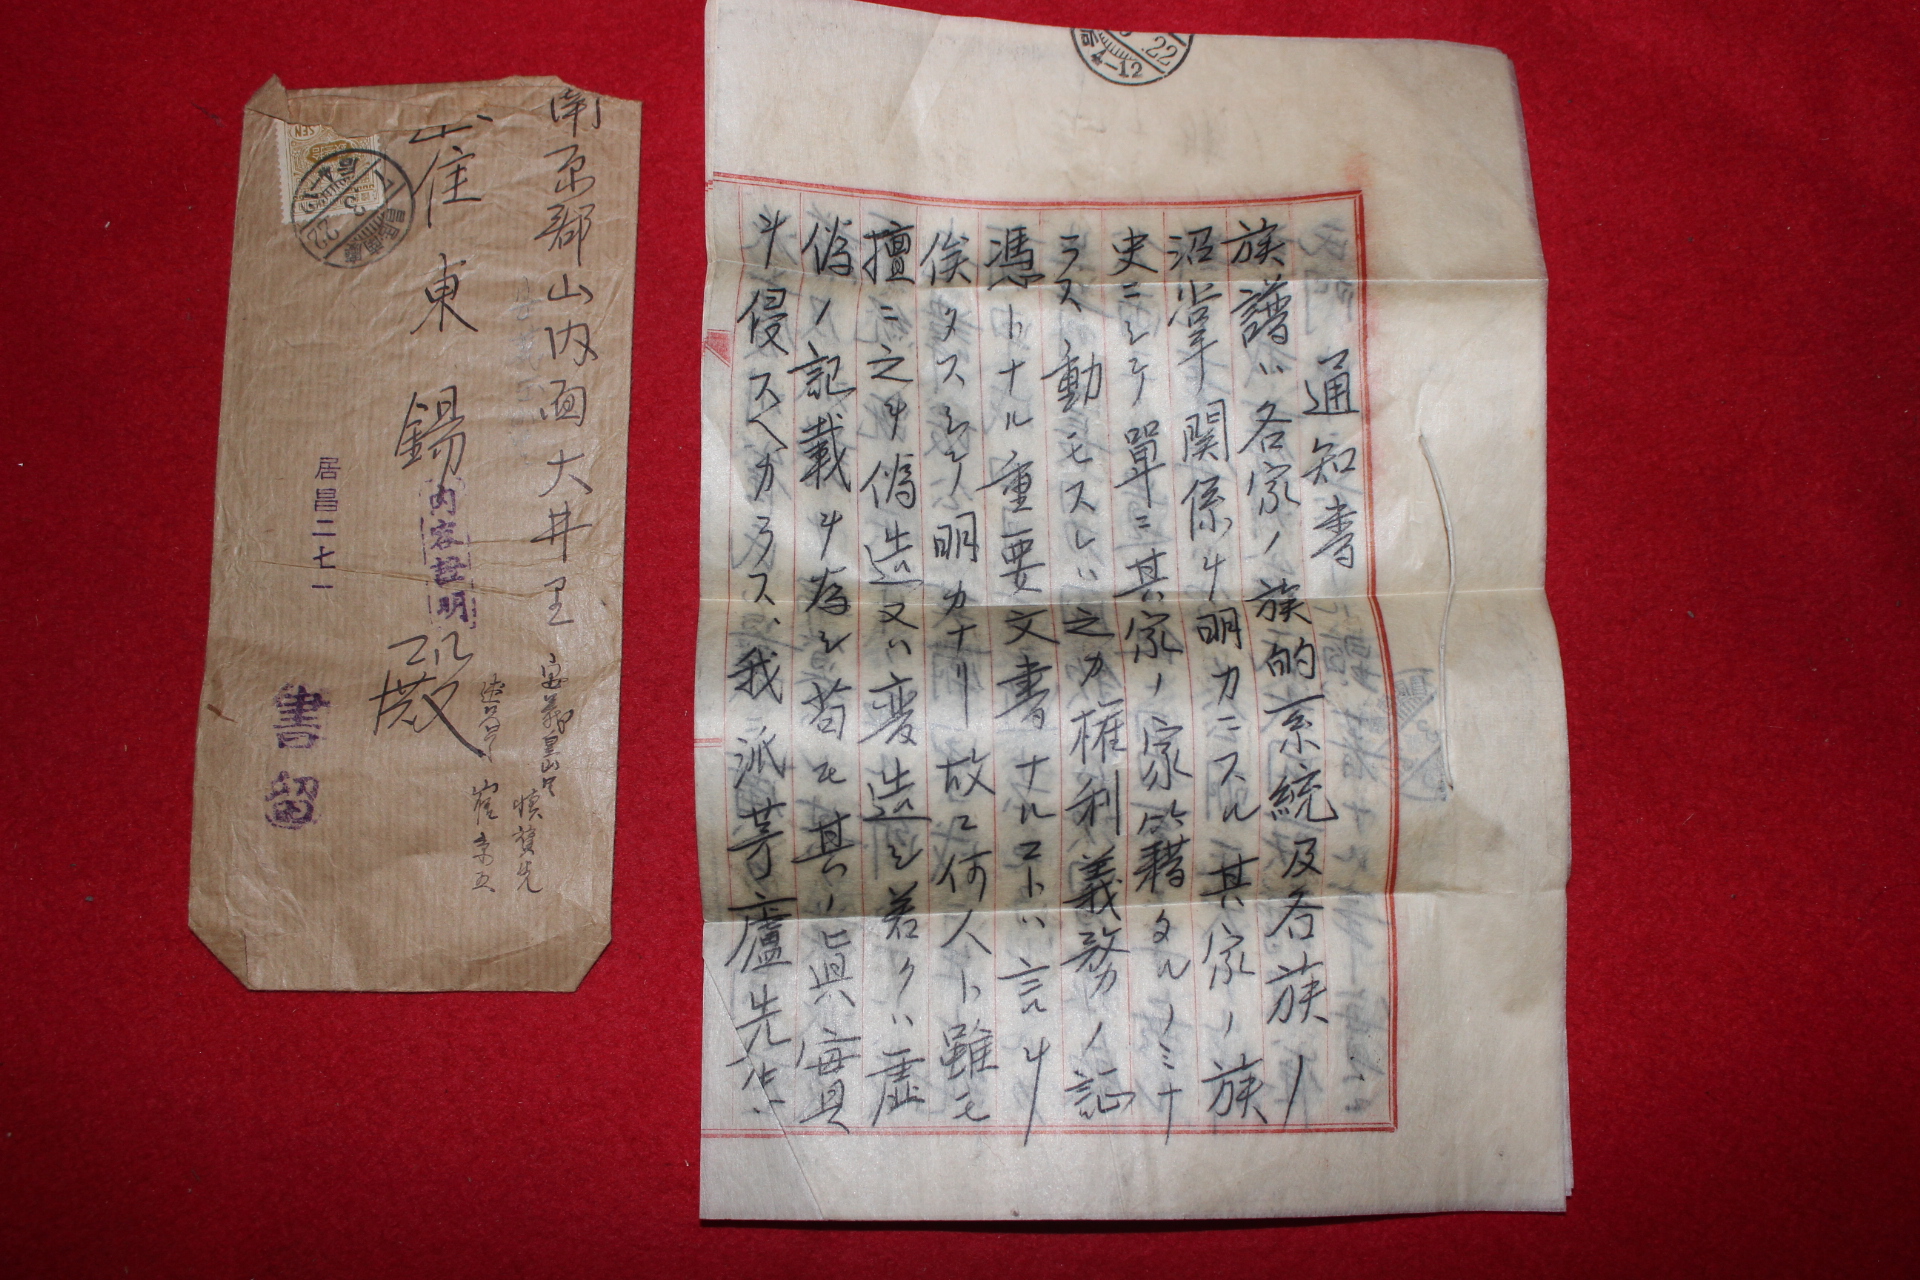 南原郡山内面大井里
崔東錫殿
内容証明
居昌二七一
書留
SEN
3
22
4-12
.22
通知書
族譜ハ各家ノ族的系統及各族ノ
沿革関係ヲ明カニスル其家ノ族
史ニシテ單ニ其家ノ家籍タルノミナ
ラス動モスレハ之カ権利義務ノ証
憑トナル重要文書ナルコトハ言ヲ
俟タスシテ明カナリ故ニ何人ト雖モ
擅ニ之ヲ偽造又ハ変造シ若クハ虚
偽ノ記載ヲ為シ苟モ其ノ眞實
ヲ侵スヘカラス、我派等廬先生ハ